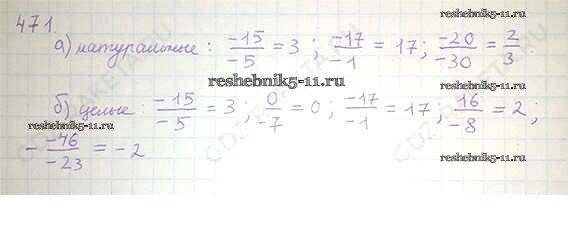 471.
reshebnik5-11.ru
а) натуральные : -15/-5 = 3 ; -17/-1 = 17; -20/-30 = 2/3
reshebnik5-11.ru
reshebnik5-11.ru
б) целые : -15/-5 = 3 ; 0/-7 = 0 ; -17/-1 = 17 ; 16/-8 = 2 ;
reshebnik5-11.ru
- -46/-23 = -2
reshebnik5-11.ru
reshebnik5-11.ru